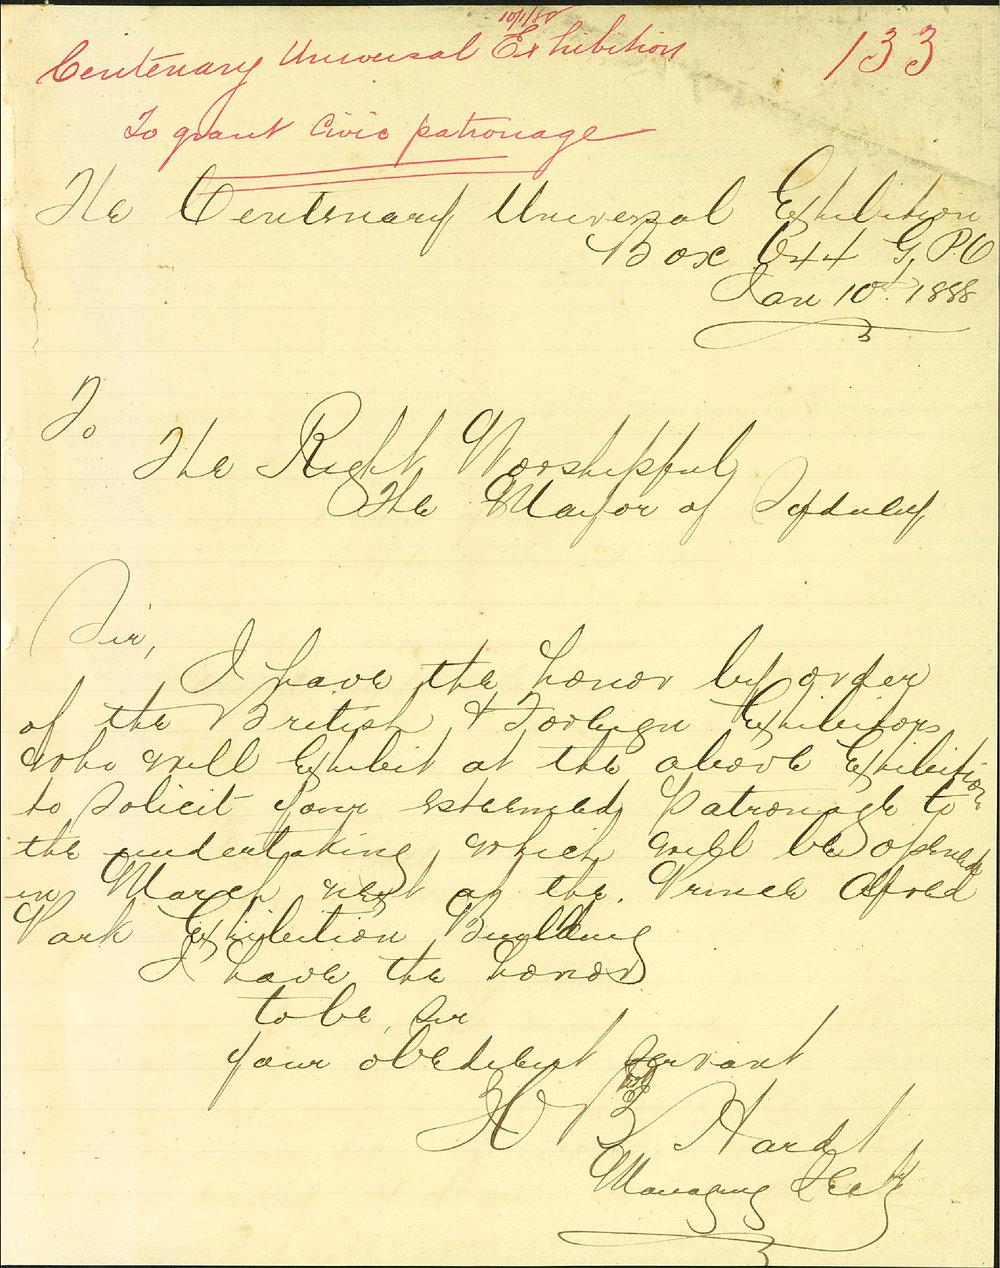 10/1/88
Centenary Universal Exhibition
133
To grant Civic patronage
The Centenary Universal Exhibition
Box 644 G.P.O
Jan 10th 1888
To
The Right Worshipful
The Mayor of Sydney
Sir,
I have the honor by order
of the British & Foreign Exhibitors
who will Exhibit at the above Exhibition
to solicit your esteemed patronage to
the undertaking which will be opened
in March next at the Prince Alfred
Park Exhibition Building
I have the honor
to be, Sir
your obedient servant
H B Hardt
Managing Secty